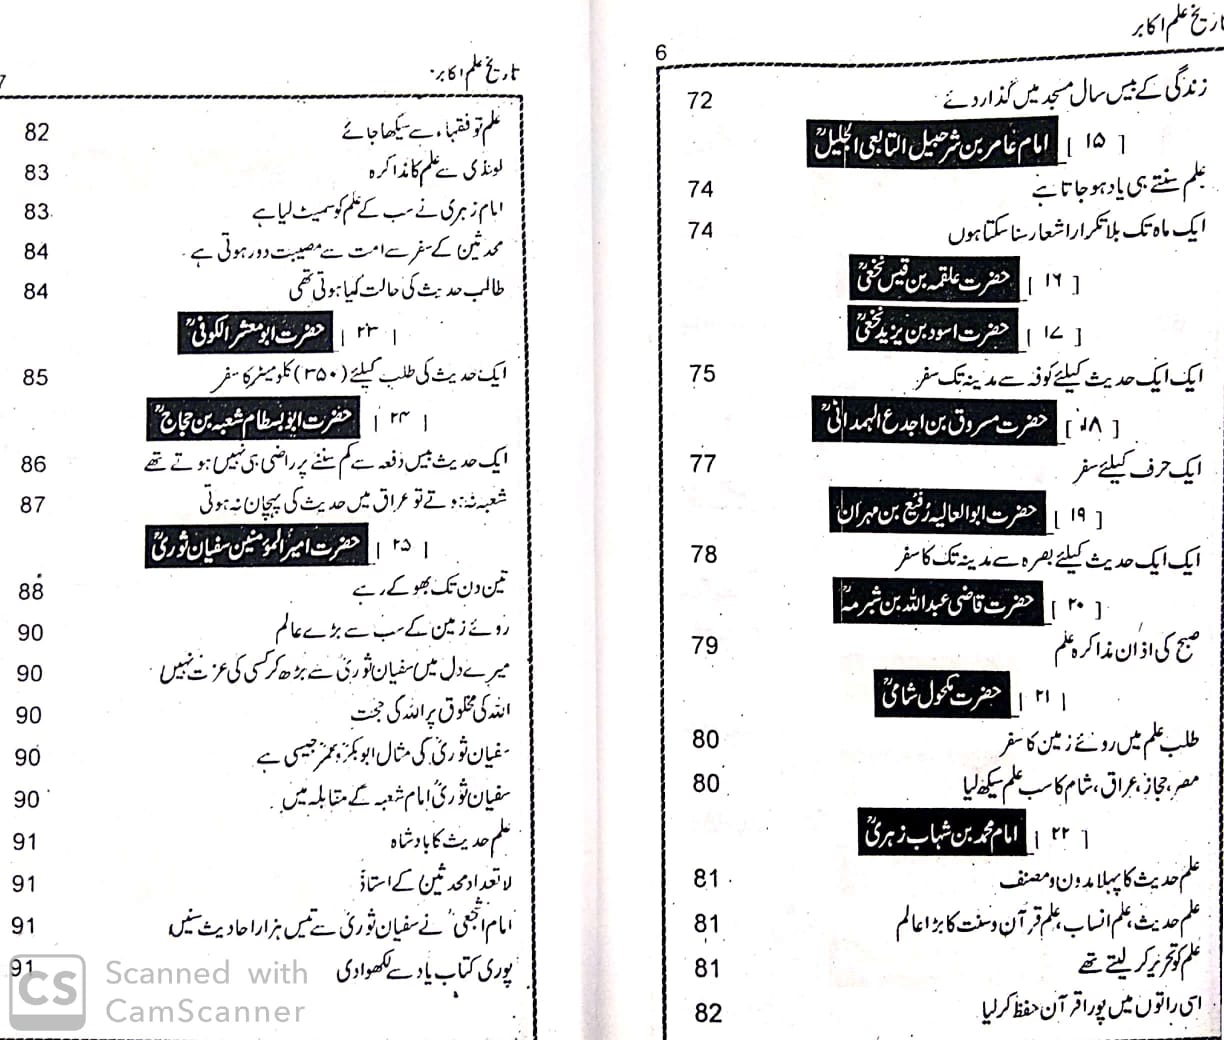 تاریخ علم اکابر
6
زندگی کے بیس سال مسجد میں گذار دئے 72
[ ۱۵ ] امام عامر بن شرحبیل التابعی الجلیلؒ
علم سنتے ہی یاد ہو جاتا ہے 74
ایک ماہ تک بلا تکرار اشعار سنا سکتا ہوں 74
[ ۱۶ ] حضرت علقمہ بن قیس نخعیؒ
[ ۱۷ ] حضرت اسود بن یزید نخعیؒ
ایک ایک حدیث کیلئے کوفہ سے مدینہ تک سفر 75
[ ۱۸ ] حضرت مسروق بن اجدع الہمدانیؒ
ایک حرف کیلئے سفر 77
[ ۱۹ ] حضرت ابو العالیہ رُفیع بن مہران
ایک ایک حدیث کیلئے بصرہ سے مدینہ تک کا سفر 78
[ ۲۰ ] حضرت قاضی عبداللہ بن شبرمہؒ
صبح کی اذان مذاکرہ علم 79
[ ۲۱ ] حضرت مکحول شامیؒ
طلب علم میں روئے زمین کا سفر 80
مصر، حجاز، عراق، شام کا سب علم سیکھ لیا 80
[ ۲۲ ] امام محمد بن شہاب زہریؒ
علم حدیث کا پہلا مدون و مصنف 81
علم حدیث، علم انساب، علم قرآن و سنت کا بڑا عالم 81
علم کو تحریر کر لیتے تھے 81
اسی راتوں میں پورا قرآن حفظ کر لیا 82
تاریخ علم اکابر
7
علم تو فقہاء سے سیکھا جائے 82
لونڈی سے علم کا مذاکرہ 83
امام زہری نے سب کے علم کو سمیٹ لیا ہے 83
محدثین کے سفر سے امت سے مصیبت دور ہوتی ہے 84
طالب حدیث کی حالت کیا ہوتی تھی 84
[ ۲۳ ] حضرت ابو معشر الکوفیؒ
ایک حدیث کی طلب کیلئے (۳۵۰) کلومیٹر کا سفر 85
[ ۲۴ ] حضرت ابو بسطام شعبہ بن حجاجؒ
ایک حدیث بیس دفعہ سے کم سننے پر راضی ہی نہیں ہوتے تھے 86
شعبہ نہ ہوتے تو عراق میں حدیث کی پہچان نہ ہوتی 87
[ ۲۵ ] حضرت امیر المؤمنین سفیان ثوریؒ
تین دن تک بھوکے رہے 88
روئے زمین کے سب سے بڑے عالم 90
میرے دل میں سفیان ثوریؒ سے بڑھ کر کسی کی عزت نہیں 90
اللہ کی مخلوق پر اللہ کی حجت 90
سفیان ثوریؒ کی مثال ابوبکرؓ و عمرؓ جیسی ہے 90
سفیان ثوریؒ امام شعبہ کے مقابلہ میں 90
علم حدیث کا بادشاہ 91
لا تعداد محدثین کے استاذ 91
امام اشجعیؒ نے سفیان ثوریؒ سے تیس ہزار احادیث سنیں 91
پوری کتاب یاد سے لکھوا دی 91
CS Scanned with
CamScanner